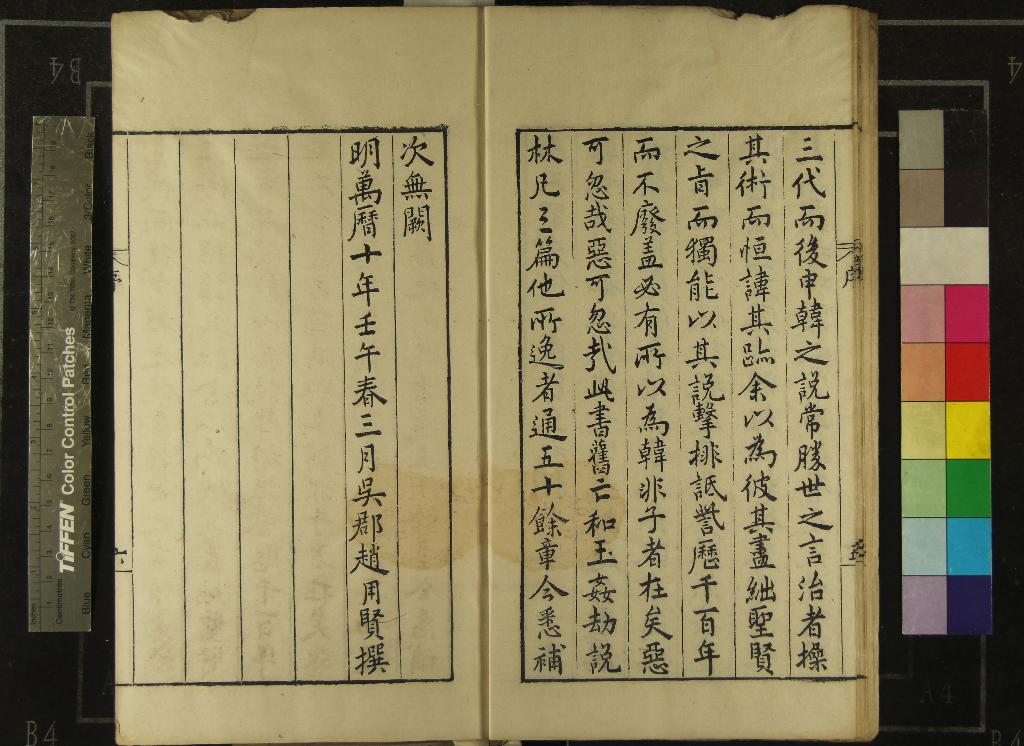 三代而後申韓之說常勝世之言治者操
其術而恒諱其跡余以為彼其盡絀聖賢
之㫖而獨能以其說擊排詆訾歷千百年
而不廢盖必有所以為韓非子者在矣惡
可忽哉惡可忽哉此書舊亡和玉姦劫說
林凡三篇他所逸者通五十餘章今悉補
次無闕
明萬曆十年壬午春三月吳郡趙用賢撰
B4
4
B4
A4
B4
TIFFEN Color Control Patches
Blue
Cyan
Green
Yellow
Red
Magenta
White
3/Color
Black
Inches
Centimetres